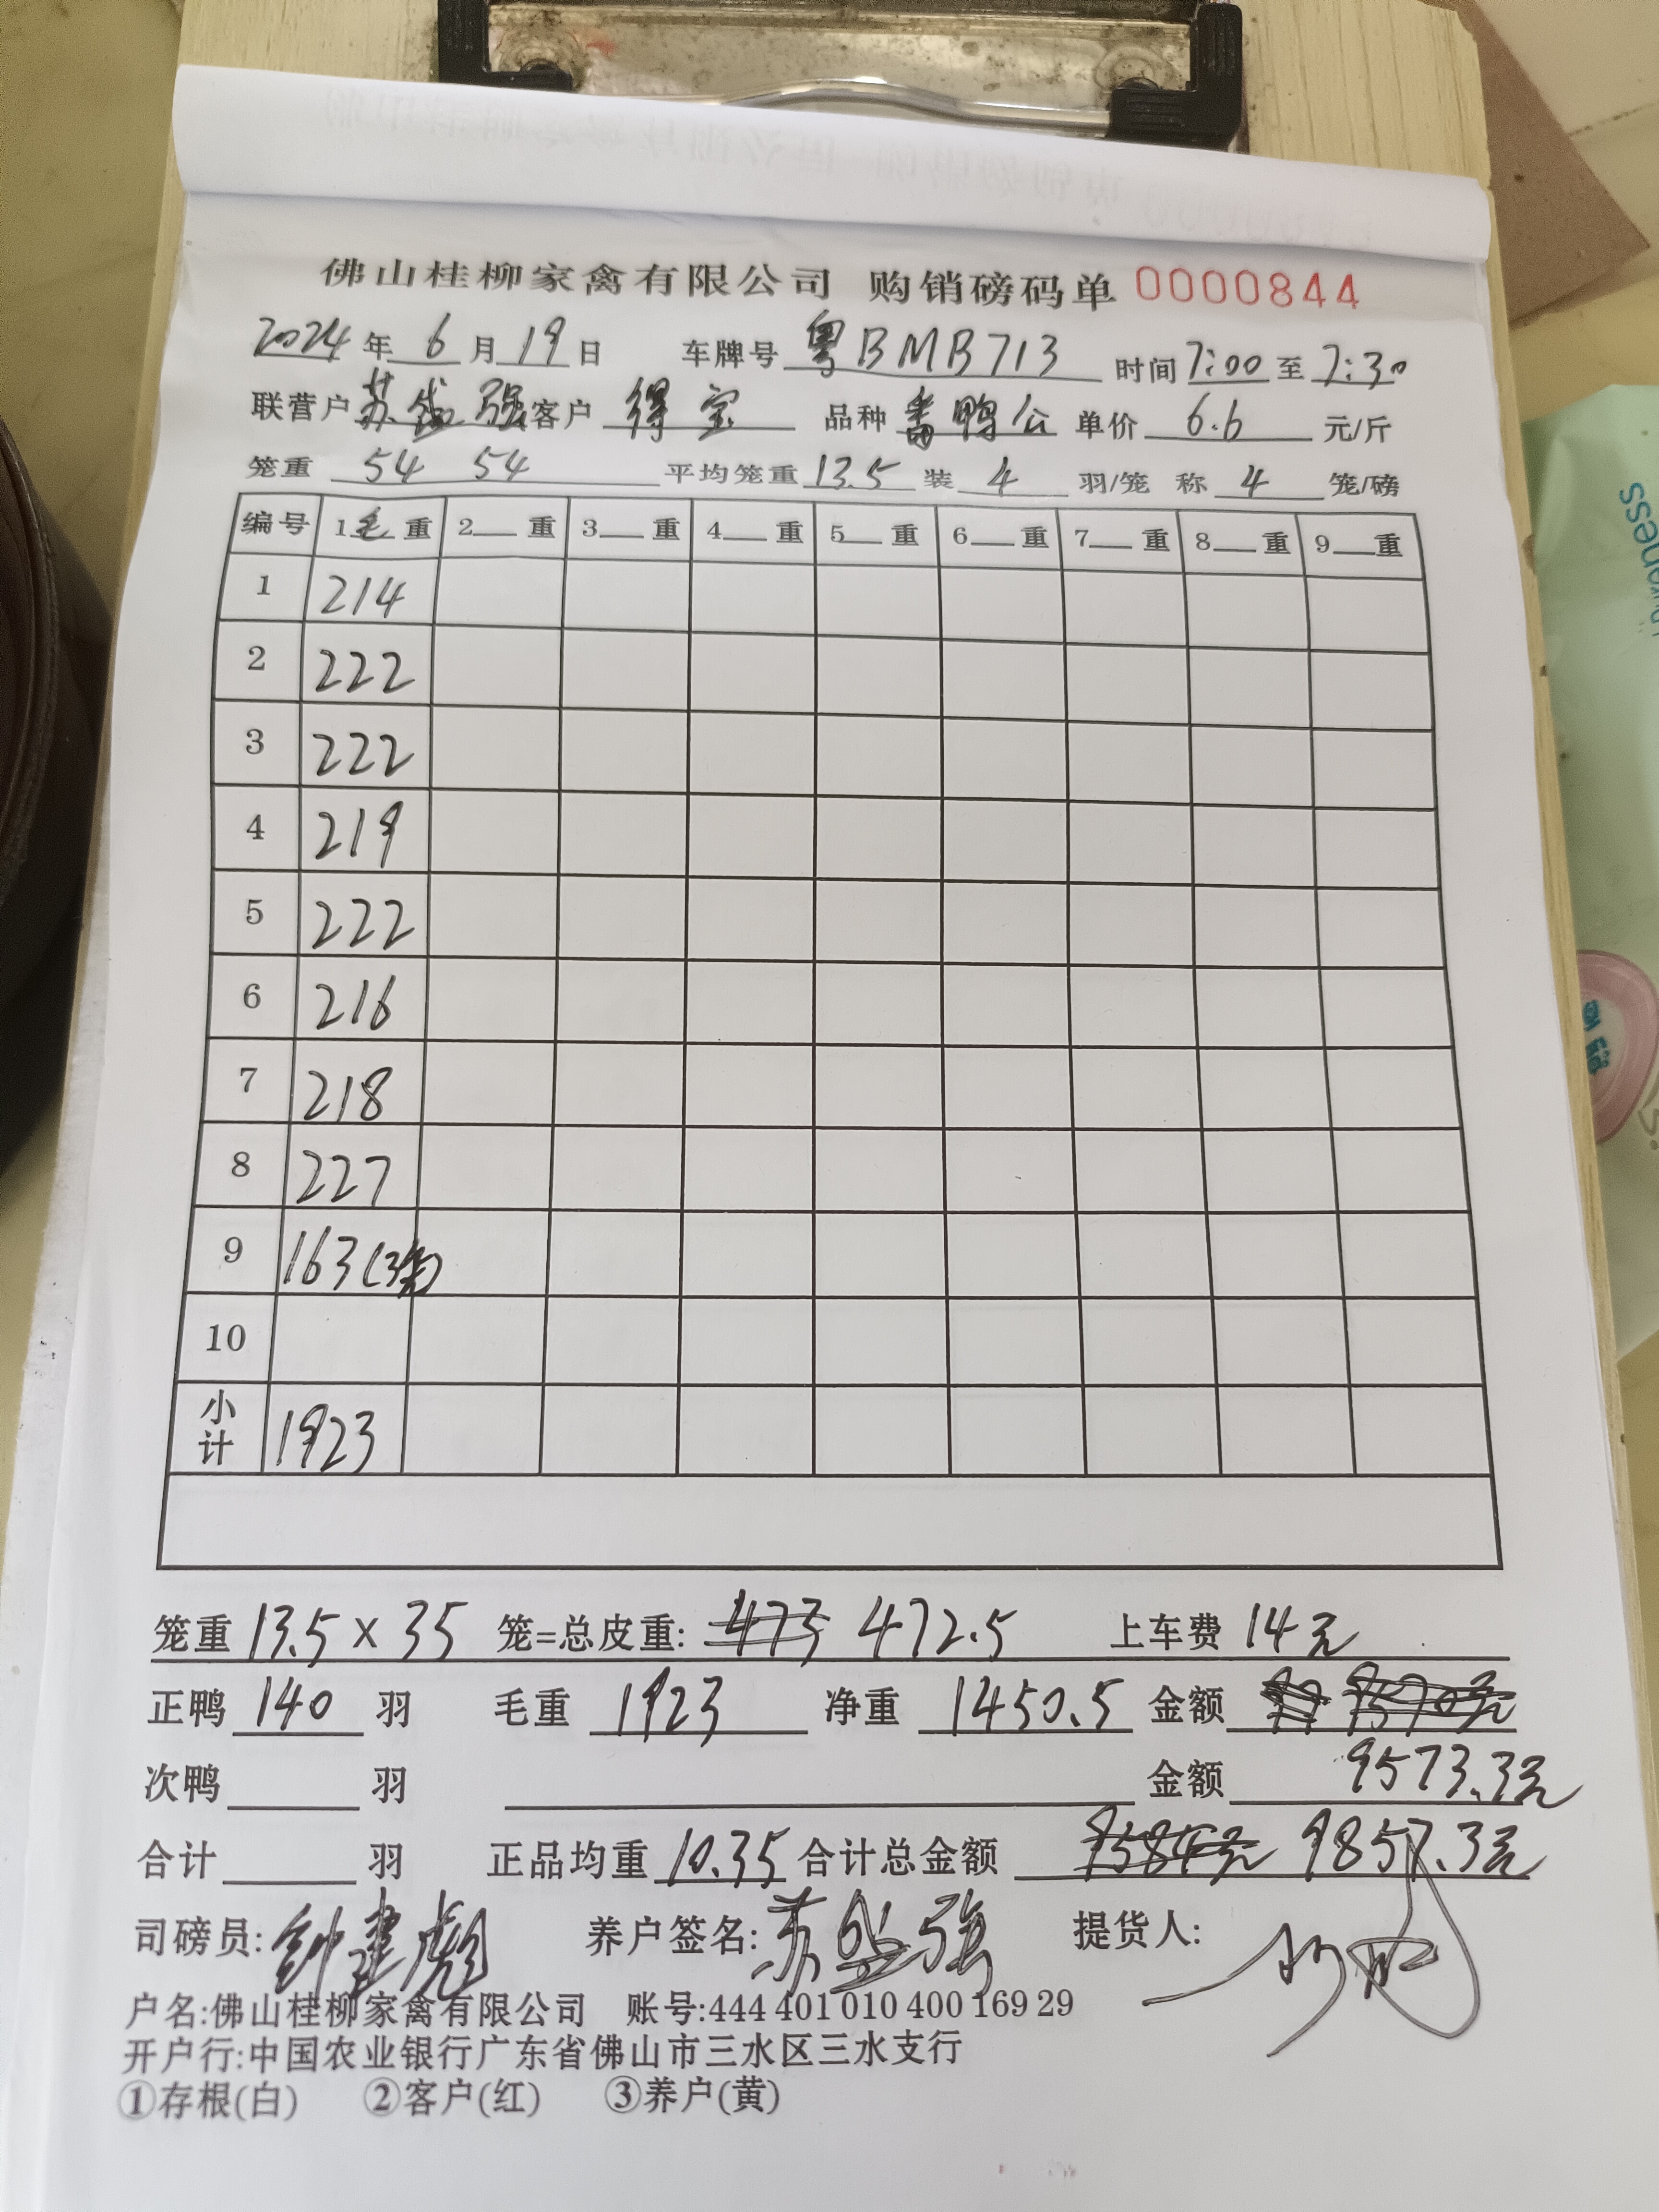 佛山桂柳家禽有限公司 购销磅码单 0000844
2024年6月19日 车牌号 粤BMB713 时间7:00至7:30
联营户 苏盛强 客户 得宝 品种 番鸭公 单价 6.6 元/斤
笼重 54 54 平均笼重 13.5 装 4 羽/笼 称 4 笼/磅
编号 1毛重 2__重 3__重 4__重 5__重 6__重 7__重 8__重 9__重
1 214
2 222
3 222
4 219
5 222
6 216
7 218
8 227
9 163(3笼)
10
小计 1923
笼重 13.5 × 35 笼=总皮重: 473 472.5 上车费 14元
正鸭 140 羽 毛重 1923 净重 1450.5 金额 9570元
次鸭 羽 金额 9573.3元
合计 羽 正品均重 10.35 合计总金额 9584元 9857.3元
司磅员: 钟建彪 养户签名: 苏盛强 提货人:
户名:佛山桂柳家禽有限公司 账号:444 401 010 400 169 29
开户行:中国农业银行广东省佛山市三水区三水支行
①存根(白) ②客户(红) ③养户(黄)